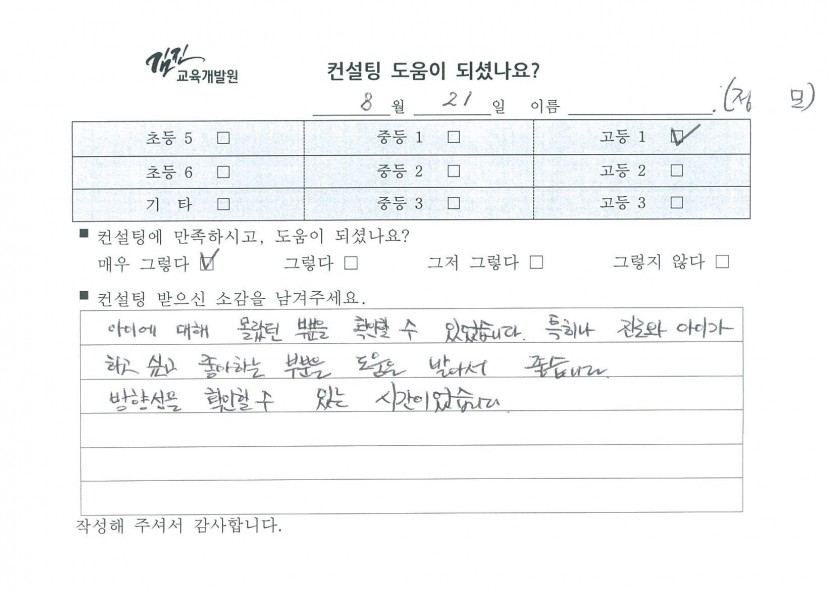 김진
교육개발원
컨설팅 도움이 되셨나요?
8 월 21 일 이름 . (정 모)
초등 5 □ 중등 1 □ 고등 1 ☑
초등 6 □ 중등 2 □ 고등 2 □
기 타 □ 중등 3 □ 고등 3 □
■ 컨설팅에 만족하시고, 도움이 되셨나요?
매우 그렇다 ☑ 그렇다 □ 그저 그렇다 □ 그렇지 않다 □
■ 컨설팅 받으신 소감을 남겨주세요.
아이에 대해 몰랐던 부분을 확인할 수 있었습니다. 특히나 진로와 아이가
하고 싶고 좋아하는 부분을 도움을 받아서 좋습니다.
방향성을 확인할 수 있는 시간이었습니다.
작성해 주셔서 감사합니다.